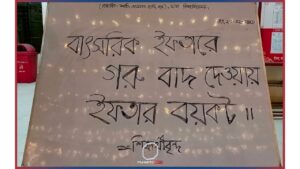 বাৎসরিক ইফতারে
গরু বাদ দেওয়ায়
ইফতার বয়কট ॥
শিক্ষার্থীবৃন্দ